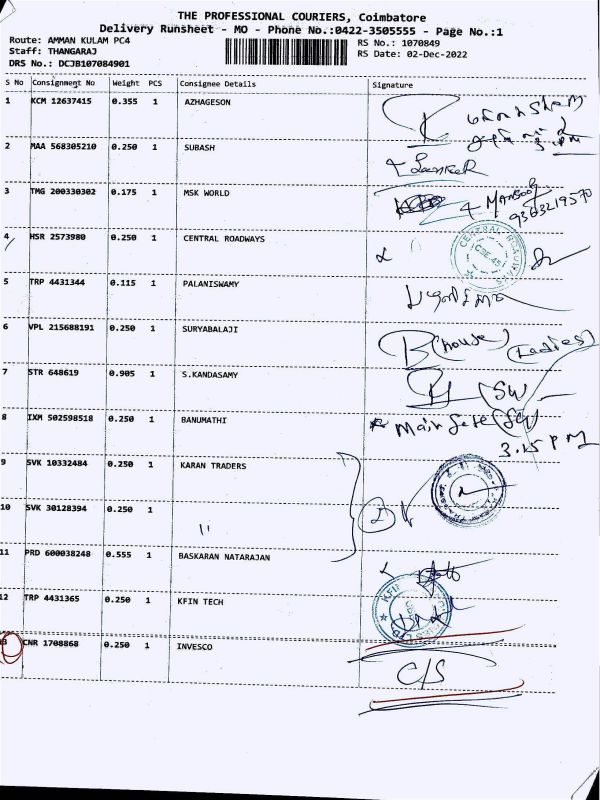 THE PROFESSIONAL COURIERS, Coimbatore
Delivery Runsheet - MO - Phone No.:0422-3505555 - Page No.:1
Route: AMMAN KULAM PC4
Staff: THANGARAJ
DRS No.: DCJB107084901
RS No.: 1070849
RS Date: 02-Dec-2022
S No Consignment No Weight PCS Consignee Details Signature
1 KCM 12637415 0.355 1 AZHAGESON
2 MAA 568305210 0.250 1 SUBASH
3 TMG 200330302 0.175 1 MSK WORLD MANSOOR
9363219570
4 HSR 2573980 0.250 1 CENTRAL ROADWAYS
CENTRAL ROADWAYS CBE-45
5 TRP 4431344 0.115 1 PALANISWAMY
6 VPL 215688191 0.250 1 SURYABALAJI (house) (Ladies)
7 STR 648619 0.905 1 S.KANDASAMY (SW)
8 IXM 502598518 0.250 1 BANUMATHI Main Gate (SW)
3.15 PM
9 SVK 10332484 0.250 1 KARAN TRADERS
10 SVK 30128394 0.250 1 "
2
11 PRD 600038248 0.555 1 BASKARAN NATARAJAN
12 TRP 4431365 0.250 1 KFIN TECH
KFIN
13 CNR 1708868 0.250 1 INVESCO C/S